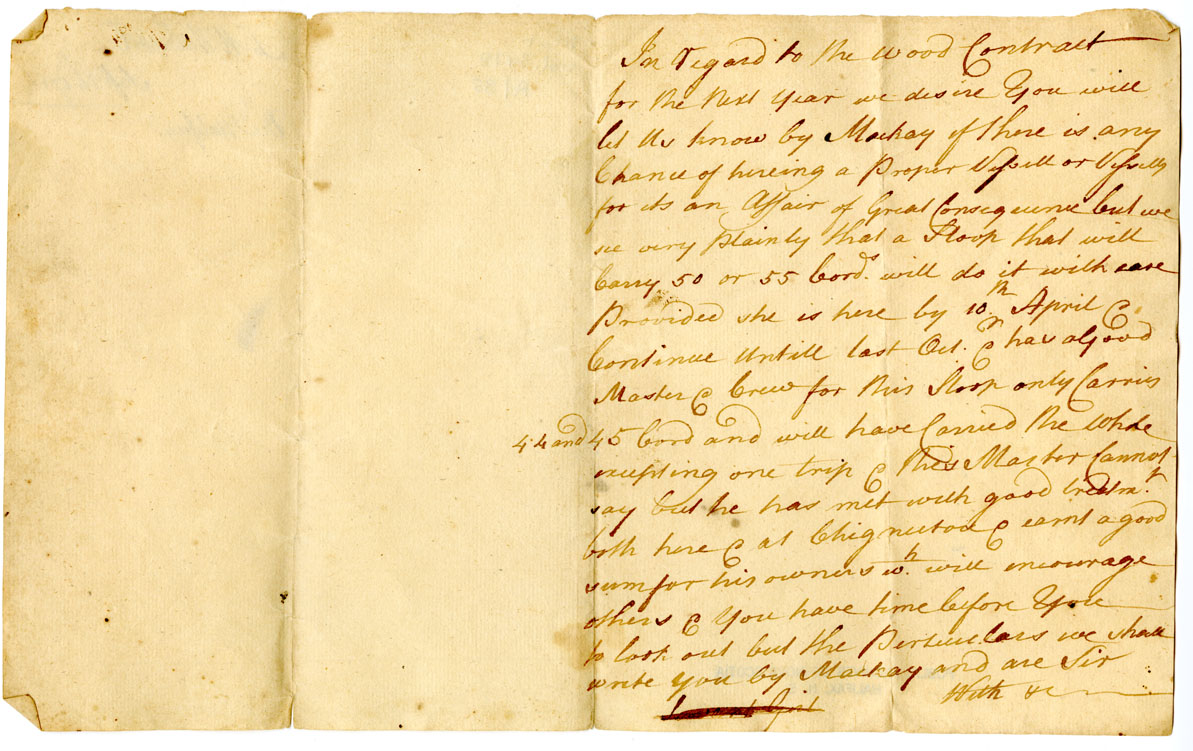 In regard to the wood Contract
for the next year we desire You will
let Us know by Mackay if there is any
Chance of hireing a Proper Vessell or Vessells
for its an Affair of Great Consequence but we
see very plainly that a Sloop that will
Carry 50 or 55 Cords. will do it with ease
Provided she is here by 10th April &
Continue Untill last Oct. & has a Good
Master & Crew for this Sloop only Carries
44 and 45 Cord and will have Carried the Whole
excepting one trip & this Master Cannot
say but he has met with good treatmt.
both here & at Chignectou & earnt a good
sum for his owners wh. will encourage
others & You have time before You
to look out but the Perticulars we shall
write you by Mackay and are Sir
With &c